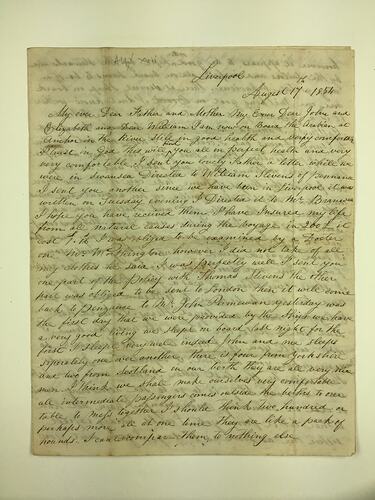 Liverpool
August 17th 1854
My ever Dear Father and Mother My Ever Dear John and
Elizabeth and Dear William I am now on Board the at
Anchor in the River Still in good health and very comfortable
I trust in God this will find you all in perfect health and very
very comfortable I sent you lovely Father a letter while we
were in Swansea Directed to William Stevens of Penzance
I sent you another since we have been in Liverpool it was
written on Tuesday evening I Directed it to Mr
I hope you have received them I have Insured my life
from all natural causes during the voyage in 200 £ it
cost I was obliged to be examined by a Docter
one Mr however I did not take off all
my clothes he said I was perfectly well I sent you
one part of the Policy with Thomas Stevens the other
part was obliged to be sent to London then it will come
back to Penzance to Mr John yesterday was
the first day that we were provided by the Ship we have
a very good living we sleept on board last night for the
first I sleept very well indeed John and me sleeps
seperately one over another, there is four from Yorkshire
and two from Scotland in our berth they are all very nice
men I think we shall make ourselves very comfortable
all intermediate passengers comes outside the before to over
table to mess together I should think two hundred or
perhaps more all at one time they are like a pack of
hounds. I can compare them to nothing else